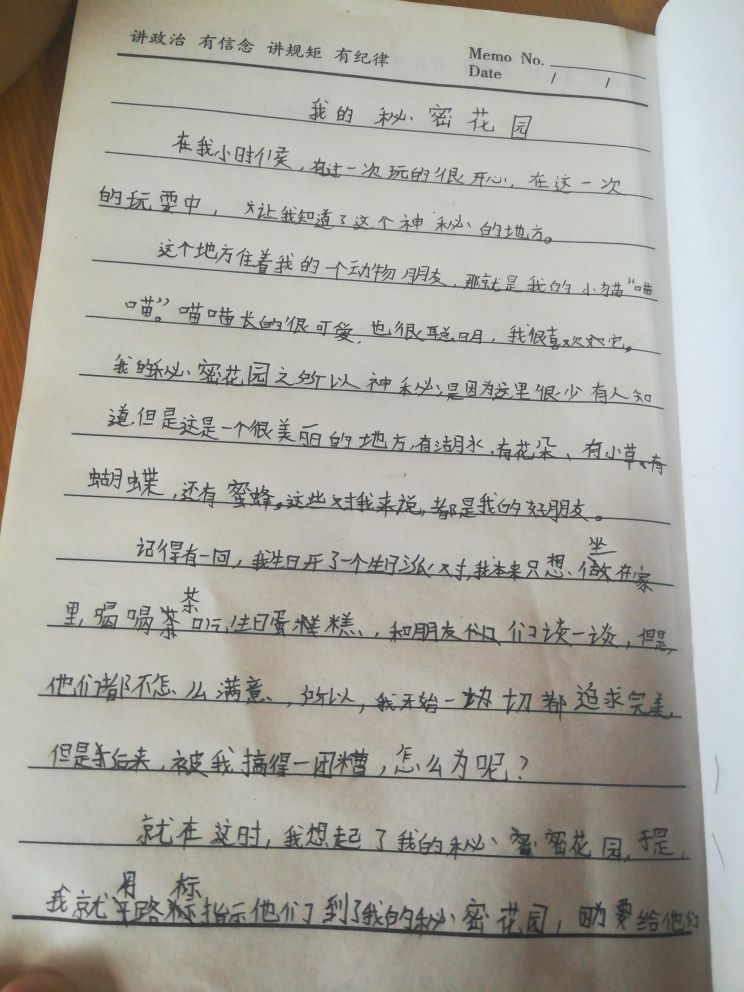 讲政治 有信念 讲规矩 有纪律
Memo No.
Date / /
我的秘密花园
在我小时候,有过一次玩的很开心,在这一次
的玩耍中,让我知道了这个神秘的地方。
这个地方住着我的一个动物朋友,那就是我的小猫“喵
喵”。喵喵长的很可爱,也很聪明,我很喜欢它。
我的秘密花园之所以神秘是因为这里很少有人知
道,但是这是一个很美丽的地方,有湖水、有花朵、有小草、有
蝴蝶,还有蜜蜂。这些对我来说,都是我的好朋友。
记得有一回,我生日开了一个生日派对,我本来只想坐在家
里,喝喝茶吃吃生日蛋糕,和朋友们谈一谈,但是,
他们都不怎么满意,所以,我开始一切都追求完美,
但是后来,被我搞得一团糟,怎么为呢?
就在这时,我想起了我的秘密花园,于是,
我就用路标指示他们到了我的秘密花园,因为要给他们